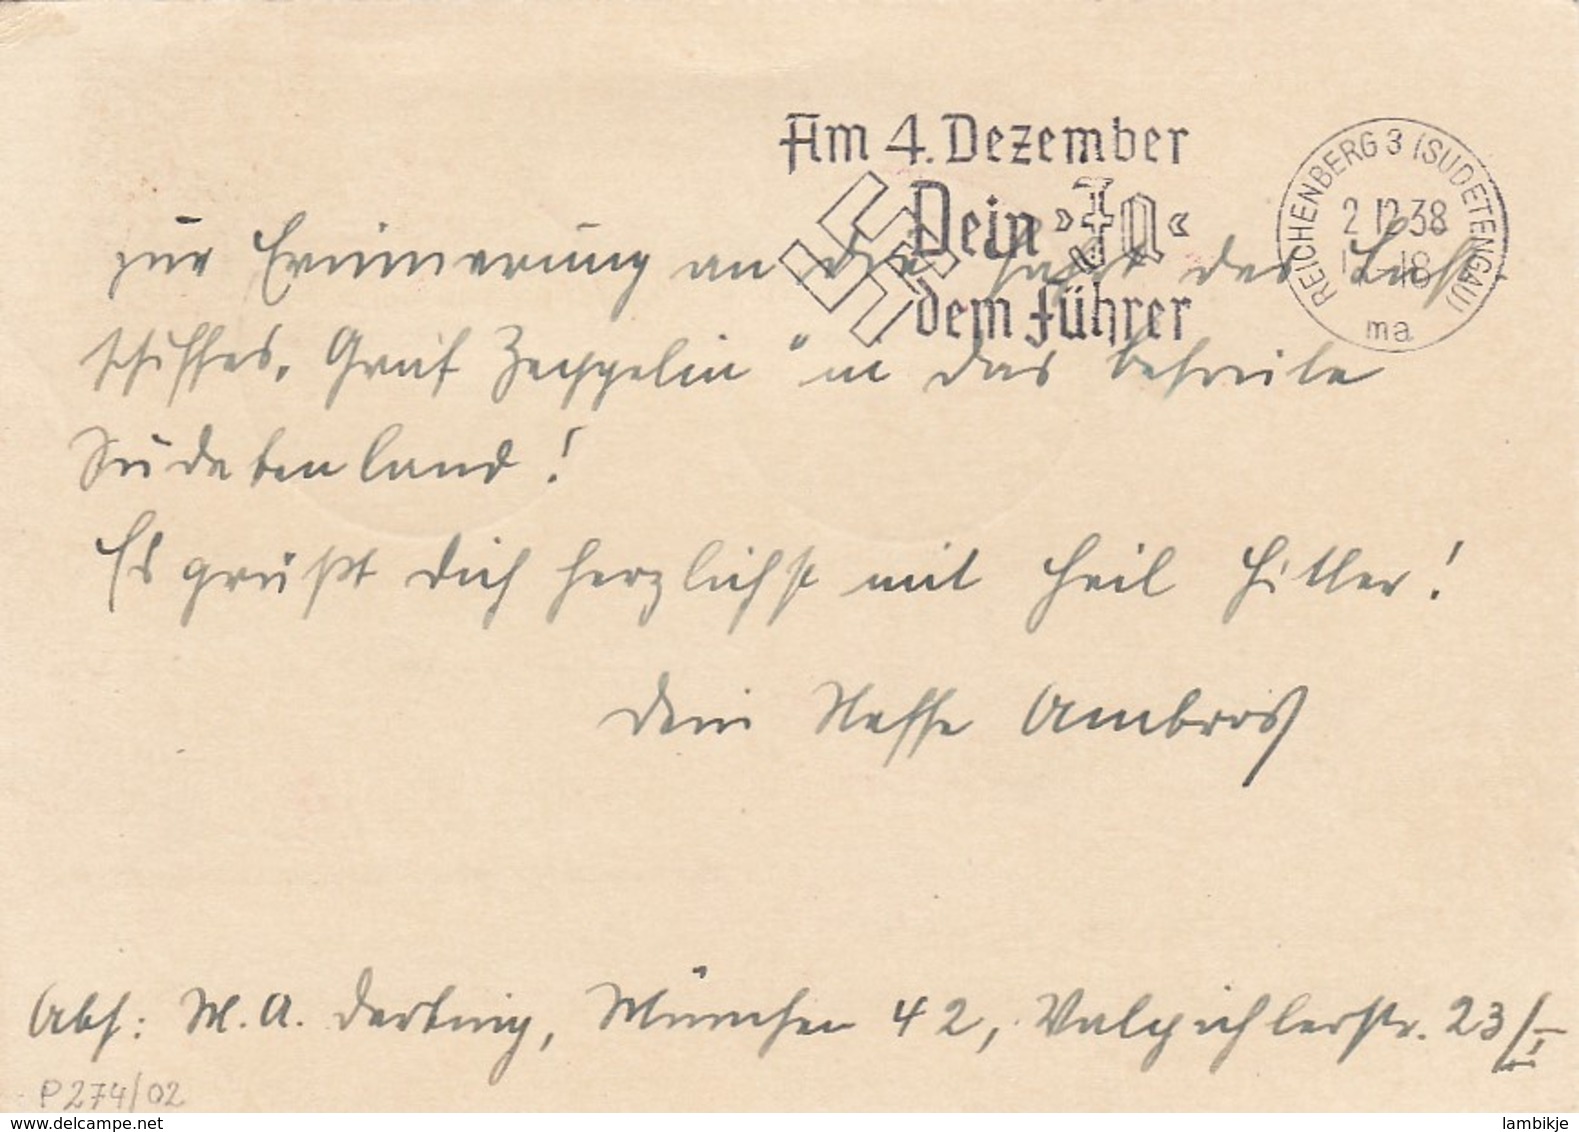 Am 4. Dezember
Dein »Ja«
dem Führer
REICHENBERG 3 (SUDETENGAU)
2.12.38
-18
ma
zur Erinnerung an die Fahrt des Luft
schiffes „Graf Zeppelin“ in das befreite
Sudetenland!
Es grüßt Dich herzlichst mit Heil Hitler!
Dein Neffe Ambros
Abs: M. A. München 42, Valpichlerstr. 23/I
P274/02
www.delcampe.net
lambikje